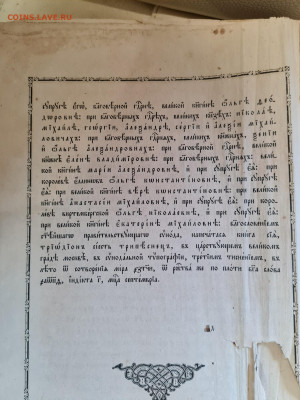 COINS-LAVE.RU
супрꙋгѣ є҆гѡ̀, бл҃говѣ́рной гдⷭ҇рнѣ, вели́кой кнѧги́нѣ ѻ҆́льгѣ ѳео-
дѡровнѣ: при бл҃говѣ́рныхъ гдⷭ҇рѣхъ, вели́кихъ кнѧзѣ́хъ: нїкола́е,
мїхаи́лѣ, геѡ́ргїи, а҆леѯа́ндрѣ, се́ргїи и҆ а҆леѯі́и мїхай-
ловичахъ: при бл҃говѣ́рныхъ гдⷭ҇рнѧхъ, вели́кихъ кнѧжна́хъ, ѯе́нїи
и҆ ѻ҆́льгѣ а҆леѯа́ндровнахъ: при бл҃говѣ́рныхъ гдⷭ҇рнѧхъ: вели́кой
кнѧги́нѣ є҆ле́нѣ влади́мїровнѣ:
кнѧги́нѣ марі́и а҆леѯа́ндровнѣ, и҆ при супрꙋ́гѣ є҆ѧ̀: при
короле́вѣ є҆́ллинскѡвъ ѻ҆́льгѣ кѡнстанті́новнѣ, и҆ при супрꙋ́гѣ
є҆ѧ̀: при вели́кой кнѧги́нѣ вѣ́рѣ кѡнстанті́новнѣ: при вели́кой
кнѧги́нѣ а҆настасі́и мїха́йловнѣ, и҆ при супрꙋ́гѣ є҆ѧ̀: при коро-
ле́вѣ виртембе́ргской ѻ҆́льгѣ нїкола́евнѣ, и҆ при супрꙋ́гѣ є҆ѧ̀:
при вели́кой кнѧги́нѣ є҆катері́нѣ мїха́йловнѣ: бл҃гослове́нїемъ
ст҃ѣ́йшагѡ прави́тельствꙋющагѡ сѵно́да, напеча́тасѧ кни́га сїѧ̀,
трїѡ́дїонъ сі́есть трипѣ́снецъ, въ ца́рствꙋющемъ вели́комъ
гра́дѣ москвѣ̀, въ сѵнода́льной тѵпогра́фїи, тре́тїимъ тисне́нїемъ, въ
лѣ́то ѿ сотворе́нїѧ мі́ра
индї́кта мцⷭ҇а септе́мврїа.